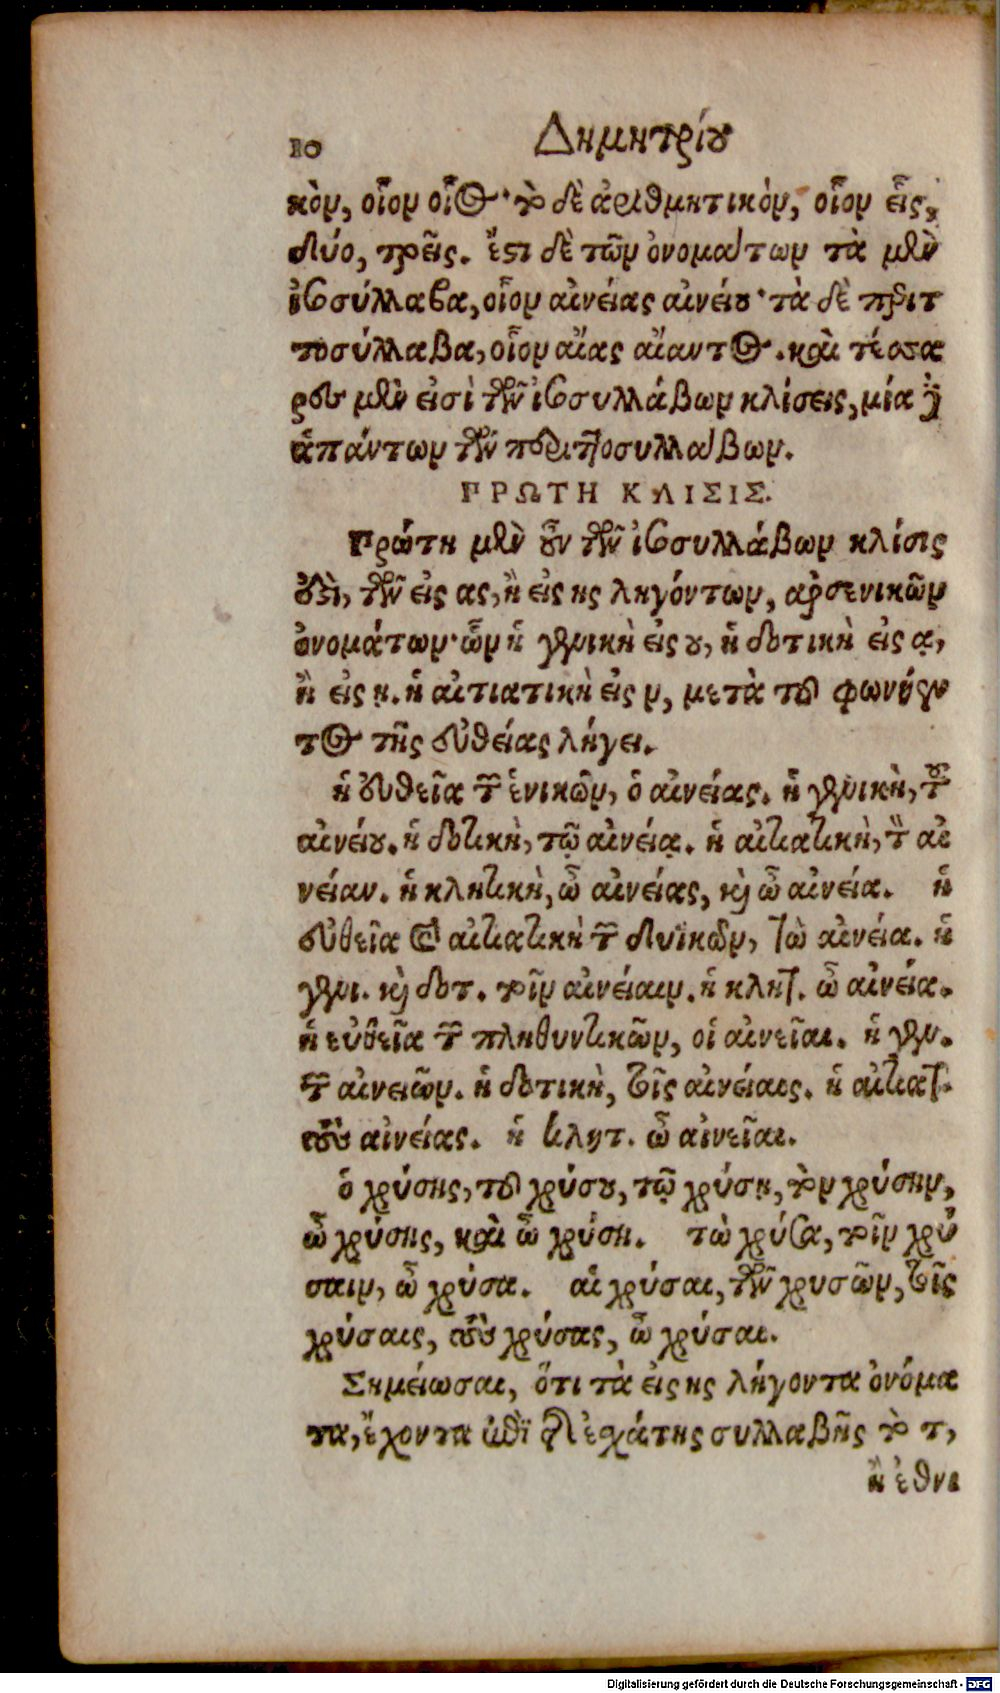 10 Δημητρίου
κὸν, οἷον οἷος· τὸ δὲ ἀριθμητικόν, οἷον εἷς,
δύο, τρεῖς. ἔτι δὲ τῶν ὀνομάτων τὰ μὲν
ἰσοσύλλαβα, οἷον αἰνείας αἰνείου· τὰ δὲ περιτ
τοσύλλαβα, οἷον αἴας αἴαντος. καὶ τέσσα
ρες μὲν εἰσὶ τῶν ἰσοσυλλάβων κλίσεις, μία δὲ
ἁπάντων τῶν περιττοσυλλάβων.
ΠΡΩΤΗ ΚΛΙΣΙΣ.
Πρώτη μὲν οὖν τῶν ἰσοσυλλάβων κλίσις
ἐστὶ, τῶν εἰς ας, ἢ εἰς ης ληγόντων, ἀρσενικῶν
ὀνομάτων· ὧν ἡ γενικὴ εἰς ου, ἡ δοτικὴ εἰς ᾳ,
ἢ εἰς ῃ. ἡ αἰτιατικὴ εἰς ν, μετὰ τοῦ φωνήεν
τος τῆς εὐθείας λήγει.
ἡ εὐθεῖα τῶν ἑνικῶν, ὁ αἰνείας. ἡ γενικὴ, τοῦ
αἰνείου. ἡ δοτικὴ, τῷ αἰνείᾳ. ἡ αἰτιατικὴ, τὸν αἰ
νείαν. ἡ κλητικὴ, ὦ αἰνείας, καὶ ὦ αἰνεία. ἡ
εὐθεῖα καὶ αἰτιατικὴ τῶν δυϊκῶν, τὼ αἰνεία. ἡ
γενι. καὶ δοτ. τοῖν αἰνείαιν. ἡ κλητ. ὦ αἰνεία.
ἡ εὐθεῖα τῶν πληθυντικῶν, οἱ αἰνεῖαι. ἡ γεν.
τῶν αἰνειῶν. ἡ δοτικὴ, τοῖς αἰνείαις. ἡ αἰτιατ.
τοὺς αἰνείας. ἡ κλητ. ὦ αἰνεῖαι.
ὁ χρύσης, τοῦ χρύσου, τῷ χρύσῃ, τὸν χρύσην,
ὦ χρύσης, καὶ ὦ χρύση. τὼ χρύσα, τοῖν χρύ
σαιν, ὦ χρύσα. οἱ χρύσαι, τῶν χρυσῶν, τοῖς
χρύσαις, τοὺς χρύσας, ὦ χρύσαι.
Σημείωσαι, ὅτι τὰ εἰς ης λήγοντα ὀνόμα
τα, ἔχοντα ἐπὶ τῆς ἐσχάτης συλλαβῆς τὸ τ,
ἢ ἐθνι
Digitalisierung gefördert durch die Deutsche Forschungsgemeinschaft - DFG